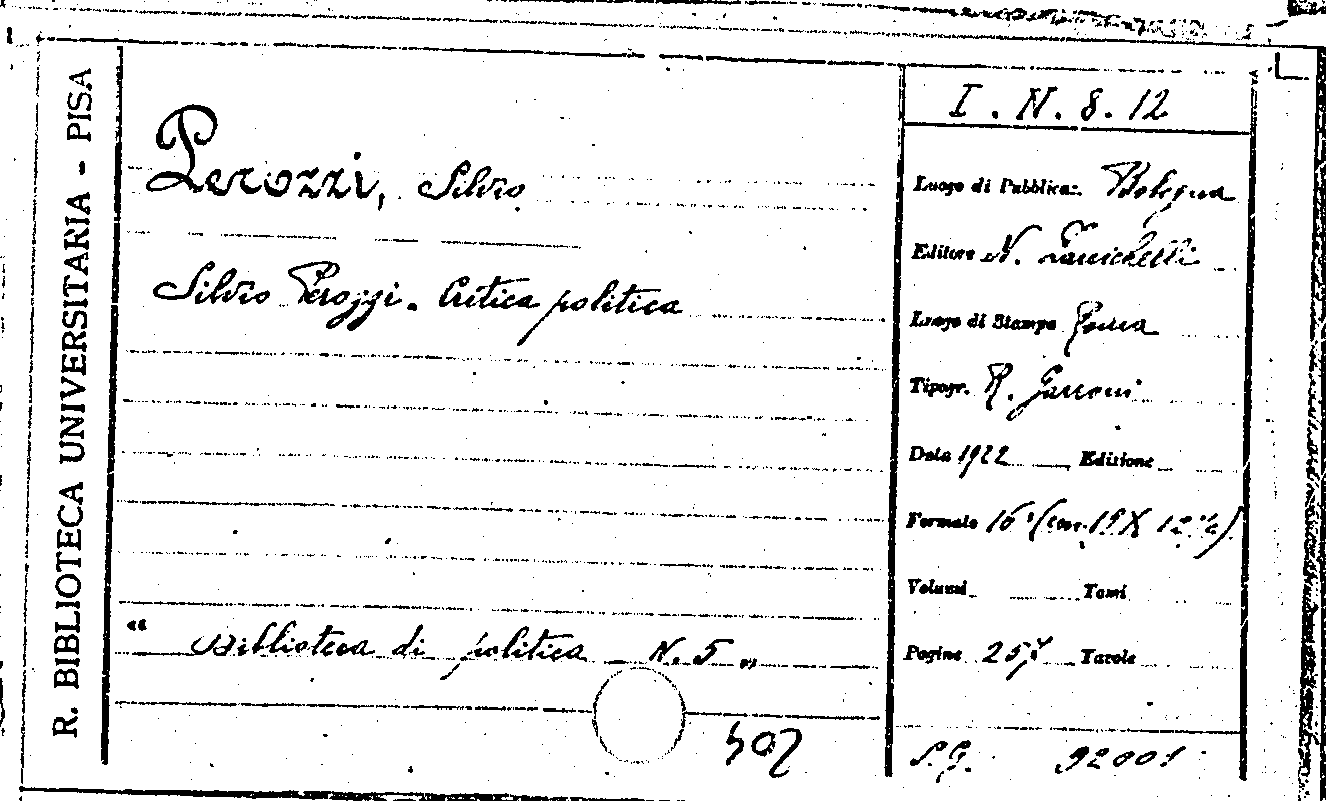 R. BIBLIOTECA UNIVERSITARIA - PISA
Perozzi, Silvio
Silvio Perozzi. Critica politica
" Biblioteca di politica N. 5 "
I. N. 8. 12
Luogo di Pubblicaz. Bologna
Editore N. Zanichelli
Luogo di Stampa Roma
Tipogr. R. Garroni
Data 1922 Edizione
Formato 16° (cm. 19 X 12 ½)
Volumi Tomi
Pagine Tavole
S.G. 92001